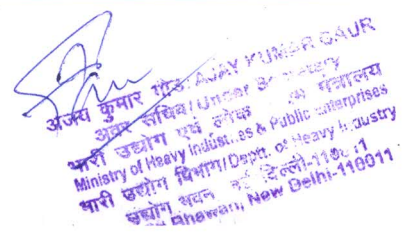 अजय कुमार गौड़/AJAY KUMAR GAUR
अवर सचिव/Under Secretary
भारी उद्योग एवं लोक मंत्रालय
Ministry of Heavy Industries & Public Enterprises
भारी उद्योग विभाग/Deptt. of Heavy Industry
उद्योग भवन नई दिल्ली-110011
Bhawan, New Delhi-110011